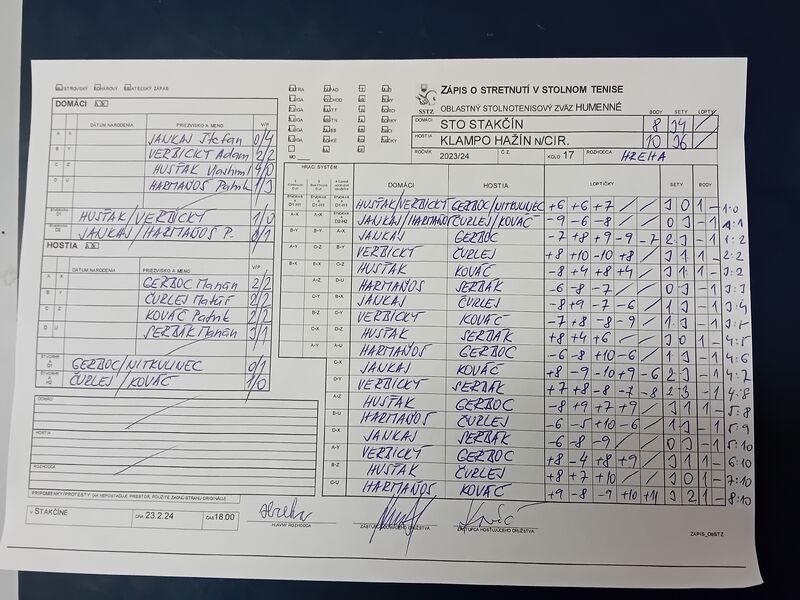 ZÁPIS O STRETNUTÍ V STOLNOM TENISE
OBLASTNÝ STOLNOTENISOVÝ ZVÄZ HUMENNÉ
SSTZ
BODY SETY LOPTY
DOMÁCI STO STAKČÍN 8 34 /
HOSTIA KLAMPO HAŽÍN n/CIR. 10 36 /
ROČNÍK 2023/24 Č.Z. KOLO 17 ROZHODCA HREHA
DOMÁCI A X
DÁTUM NARODENIA PRIEZVISKO A MENO V/P
A X JANKAJ Štefan 0/4
B Y VERBICKÝ Adam 2/2
C Z HUSŤAK 4/0
D U HARMAŇOS Patrik 1/3
HUSŤAK/VERBICKÝ 1/0
JANKAJ/HARMAŇOS P. 0/1
HOSTIA A X
DÁTUM NARODENIA PRIEZVISKO A MENO V/P
A X GERBOC Marián 2/2
B Y ČURLEJ Matúš 2/2
C Z KOVÁČ Patrik 2/2
D U SERBÁK Marián 3/1
GERBOC/NITKULINEC 0/1
ČURLEJ/KOVÁČ 1/0
DOMÁCI
HOSTIA
ROZHODCA
HRACÍ SYSTÉM
DOMÁCI HOSTIA LOPTIČKY SETY BODY
HUSŤAK/VERBICKÝ GERBOC/NITKULINEC +6 +6 +7 / / 3 0 1 – 1:0
JANKAJ/HARMAŇOS ČURLEJ/KOVÁČ -9 -6 -8 / / 0 3 – 1 1:1
JANKAJ GERBOC -7 +8 +9 -9 -7 2 3 – 1 1:2
VERBICKÝ ČURLEJ +8 +10 -10 +8 / 3 1 1 – 2:2
HUSŤAK KOVÁČ -8 +4 +8 +4 / 3 1 1 – 3:2
HARMAŇOS SERBÁK -6 -8 -7 / / 0 3 – 1 3:3
JANKAJ ČURLEJ -8 +9 -7 -6 / 1 3 – 1 3:4
VERBICKÝ KOVÁČ -7 +8 -8 -9 / 1 3 – 1 3:5
HUSŤAK SERBÁK +8 +4 +6 / / 3 0 1 – 4:5
HARMAŇOS GERBOC -6 -8 +10 -6 / 1 3 – 1 4:6
JANKAJ KOVÁČ +8 -9 -10 +9 -6 2 3 – 1 4:7
VERBICKÝ SERBÁK +7 +8 -8 -7 -8 2 3 – 1 4:8
HUSŤAK GERBOC -8 +9 +7 +9 / 3 1 1 – 5:8
HARMAŇOS ČURLEJ -6 -5 +10 -6 / 1 3 – 1 5:9
JANKAJ SERBÁK -6 -8 -9 / / 0 3 – 1 5:10
VERBICKÝ GERBOC +8 -4 +8 +9 / 3 1 1 – 6:10
HUSŤAK ČURLEJ +8 +7 +10 / / 3 0 1 – 7:10
HARMAŇOS KOVÁČ +9 -8 -9 +10 +11 3 2 1 – 8:10
PRIPOMIENKY/PROTESTY (AK NEPOSTAČUJE PRIESTOR, POUŽITE ZADNÚ STRANU ORIGINÁLU)
V STAKČÍNE DŇA 23.2.24 ČAS 18.00
HLAVNÝ ROZHODCA
ZÁSTUPCA DOMÁCEHO DRUŽSTVA
ZÁSTUPCA HOSŤUJÚCEHO DRUŽSTVA
ZÁPIS_ObSTZ